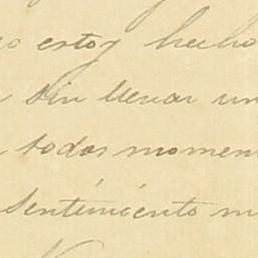 estoy hecho
sin llevar un
todos momen
sentimiento m